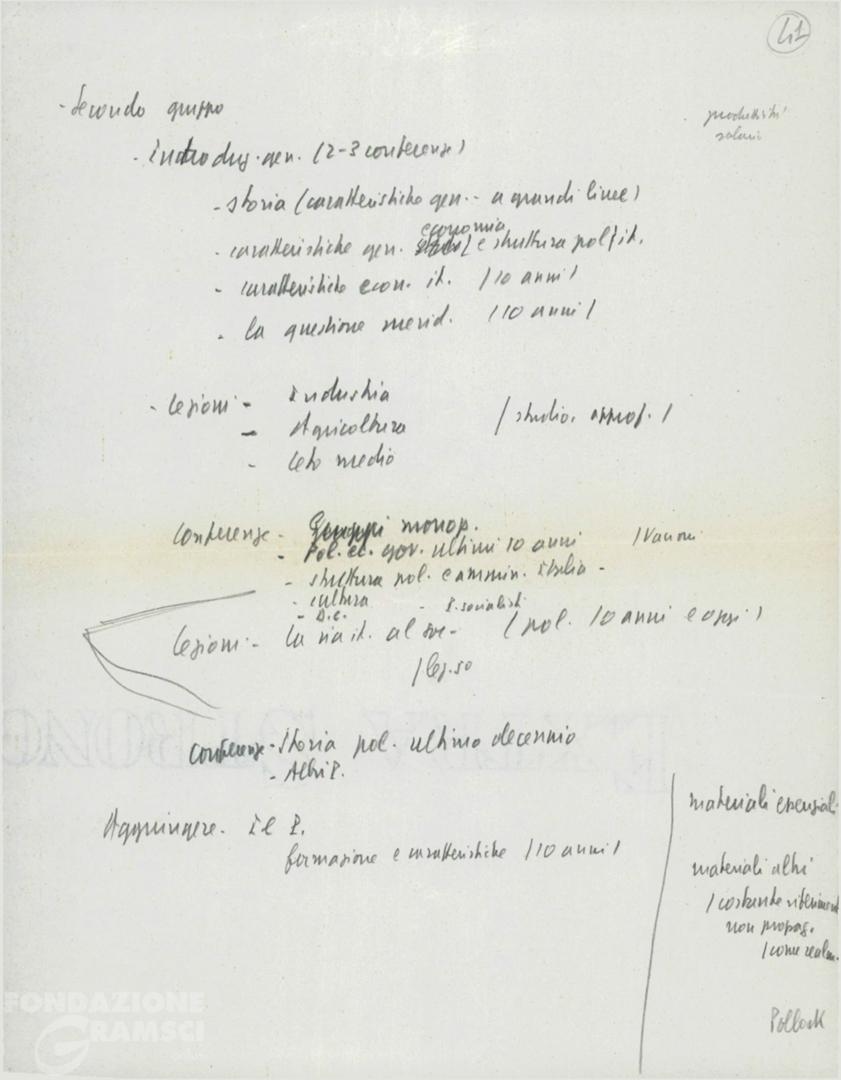 41
- Secondo gruppo
produttività
salari
- Introduz. gen. (2-3 conferenze)
- storia (caratteristiche gen. - a grandi linee)
economia
- caratteristiche gen. e struttura pol. it.
- caratteristiche econ. it. (10 anni)
- la questione merid. (10 anni)
- lezioni - Industria
- Agricoltura (studio. approf.)
- Ceto medio
Conferenze - Gruppi monop.
- Pol. ec. gov. ultimi 10 anni (Vanoni
- struttura pol. e ammin. Italia -
- cultura
- D.C. - P. socialisti
Lezioni - La via it. al soc - (pol. 10 anni e oggi)
Conferenze - Storia pol. ultimo decennio
- Altri P.
Aggiungere - Il P.
formazione e caratteristiche (10 anni)
materiali essenziali
materiali altri
(costante riferimento
non propag.
(come realm.
Pollock
FONDAZIONE
GRAMSCI